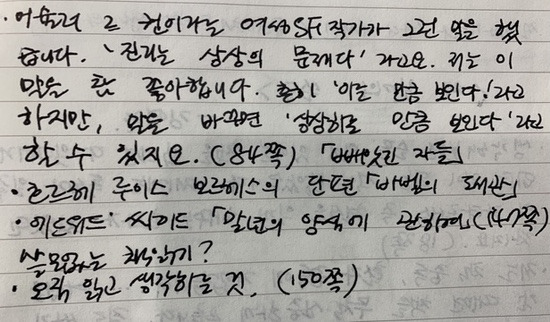 · 어슐러 르 귄이라는 여성SF작가가 그런 말을 했
습니다. '진리는 상상의 문제다' 라고요. 저는 이
말을 참 좋아합니다. 흔히 '아는 만큼 보인다!' 라고
하지만, 말을 바꾸면 '상상하는 만큼 보인다' 라고
할 수 있지요. (84쪽) 「빼앗긴 자들」
· 호르헤 루이스 보르헤스의 단편 「바벨의 도서관」
· 에드워드 싸이드 「말년의 양식에 관하여」 (147쪽)
쓸모없는 책읽기?
· 오직 읽고 생각하는 것. (150쪽)